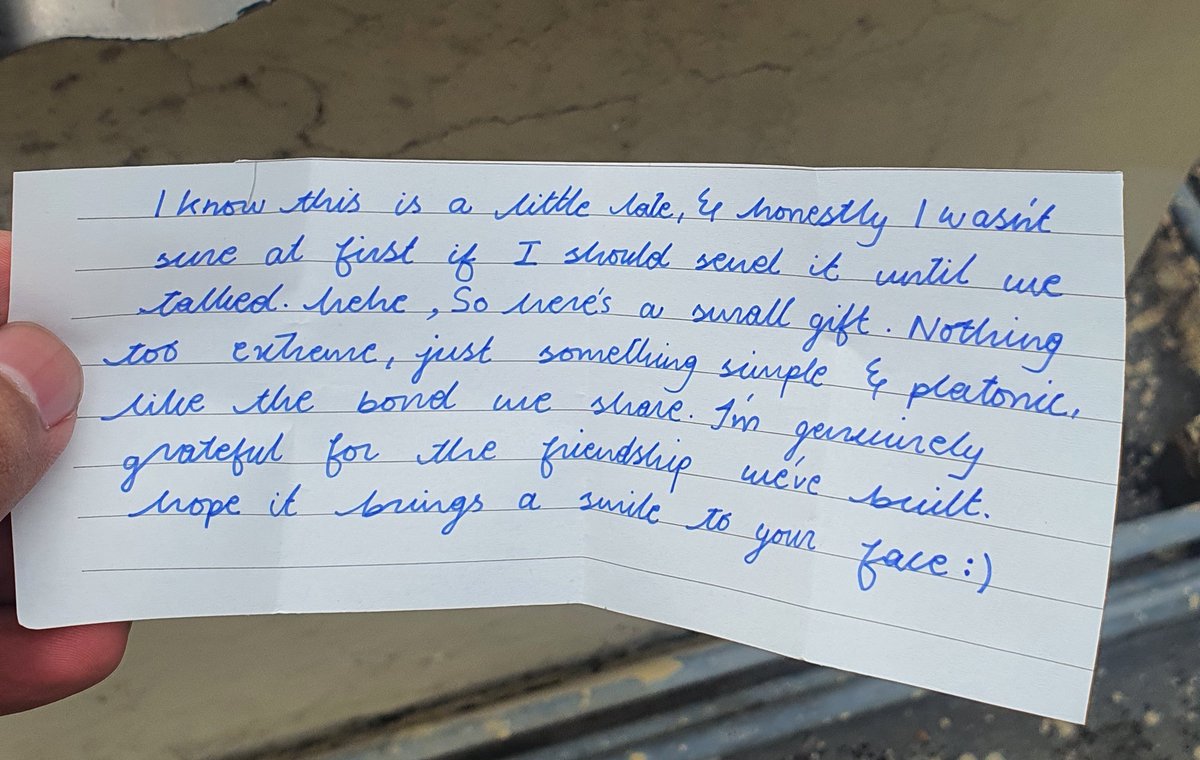 I know this is a little late, & honestly I wasn't
sure at first if I should send it until we
talked. hehe, So here's a small gift. Nothing
too extreme, just something simple & platonic,
like the bond we share. I'm genuinely
grateful for the friendship we've built.
hope it brings a smile to your face :)